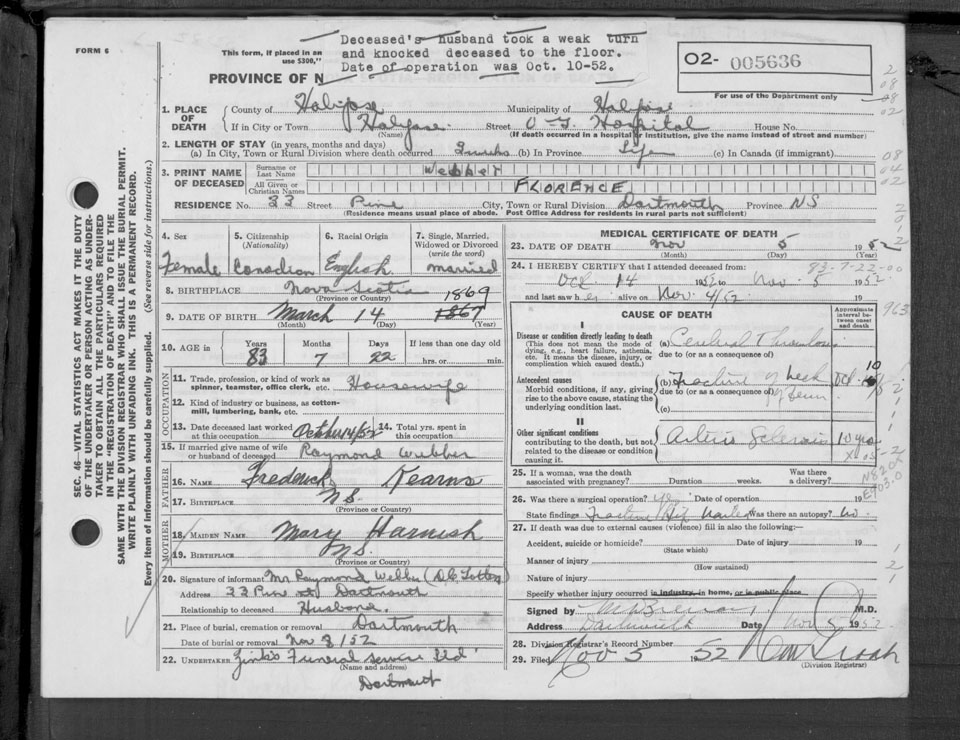 FORM 6
Deceased's husband took a weak turn
and knocked deceased to the floor.
Date of operation was Oct. 10-52.
This form, if placed in an
use $300,"
PROVINCE OF N
02- 005636
For use of the Department only
SEC. 46—VITAL STATISTICS ACT MAKES IT THE DUTY
OF THE UNDERTAKER OR PERSON ACTING AS UNDER-
TAKER TO OBTAIN ALL THE PARTICULARS REQUIRED
IN THE "REGISTRATION OF DEATH" AND TO FILE THE
SAME WITH THE DIVISION REGISTRAR WHO SHALL ISSUE THE BURIAL PERMIT.
WRITE PLAINLY WITH UNFADING INK. THIS IS A PERMANENT RECORD.
Every item of information should be carefully supplied. (See reverse side for instructions.)
1. PLACE OF DEATH
County of Halifax Municipality of Halifax
If in City or Town Halifax Street Hospital House No.
(Name) (If death occurred in a hospital or institution, give the name instead of street and number)
2. LENGTH OF STAY (in years, months and days)
(a) In City, Town or Rural Division where death occurred 3 weeks (b) In Province Life (c) In Canada (if immigrant)
3. PRINT NAME OF DECEASED
Surname or Last Name Webber
All Given or Christian Names FLORENCE
RESIDENCE No. 33 Street Pine City, Town or Rural Division Dartmouth Province NS
(Residence means usual place of abode. Post Office Address for residents in rural parts not sufficient)
4. Sex Female
5. Citizenship (Nationality) Canadian
6. Racial Origin English
7. Single, Married, Widowed or Divorced (write the word) married
8. BIRTHPLACE Nova Scotia
(Province or Country)
1869
9. DATE OF BIRTH March 14 1867
(Month) (Day) (Year)
10. AGE in Years 83 Months 7 Days 22 If less than one day old hrs. or min.
OCCUPATION
11. Trade, profession, or kind of work as spinner, teamster, office clerk, etc. Housewife
12. Kind of industry or business, as cotton-mill, lumbering, bank, etc.
13. Date deceased last worked at this occupation October 14/52 14. Total yrs. spent in this occupation
15. If married give name of wife or husband of deceased Raymond Webber
FATHER
16. NAME Frederick Kearns
17. BIRTHPLACE NS
(Province or Country)
MOTHER
18. MAIDEN NAME Mary Harnish
19. BIRTHPLACE NS.
(Province or Country)
20. Signature of informant Mr Raymond Webber
Address 33 Pine st Dartmouth
Relationship to deceased Husband.
21. Place of burial, cremation or removal Dartmouth
Date of burial or removal Nov 8/52
22. UNDERTAKER Zink's Funeral Service Ltd
(Name and address)
Dartmouth
MEDICAL CERTIFICATE OF DEATH
23. DATE OF DEATH Nov 5 1952
(Month) (Day) (Year)
83-7-22-00
24. I HEREBY CERTIFY that I attended deceased from:
Oct 14 1952 to Nov. 5 1952
and last saw her alive on Nov. 4/52
CAUSE OF DEATH
Approximate interval between onset and death
I
Disease or condition directly leading to death
(This does not mean the mode of dying, e.g., heart failure, asthenia, etc. It means the disease, injury, or complication which caused death.)
(a) Cerebral Thrombosis
due to (or as a consequence of)
Antecedent causes
Morbid conditions, if any, giving rise to the above cause, stating the underlying condition last.
(b) Fracture of neck of femur
due to (or as a consequence of)
(c)
II
Other significant conditions contributing to the death, but not related to the disease or condition causing it.
Arterio Sclerosis 10 yrs
25. If a woman, was the death associated with pregnancy? Duration weeks. Was there a delivery?
26. Was there a surgical operation? Yes Date of operation 19
State findings Fracture Hip nailed Was there an autopsy? No.
N820
E903.0
27. If death was due to external causes (violence) fill in also the following:—
Accident, suicide or homicide? Date of injury 19
(State which)
Manner of injury
(How sustained)
Nature of injury
Specify whether injury occurred in industry, in home, or in public place
Signed by M.D.
Address Dartmouth Date Nov 5 1952
28. Division Registrar's Record Number
29. Filed Nov 5 1952
(Division Registrar)